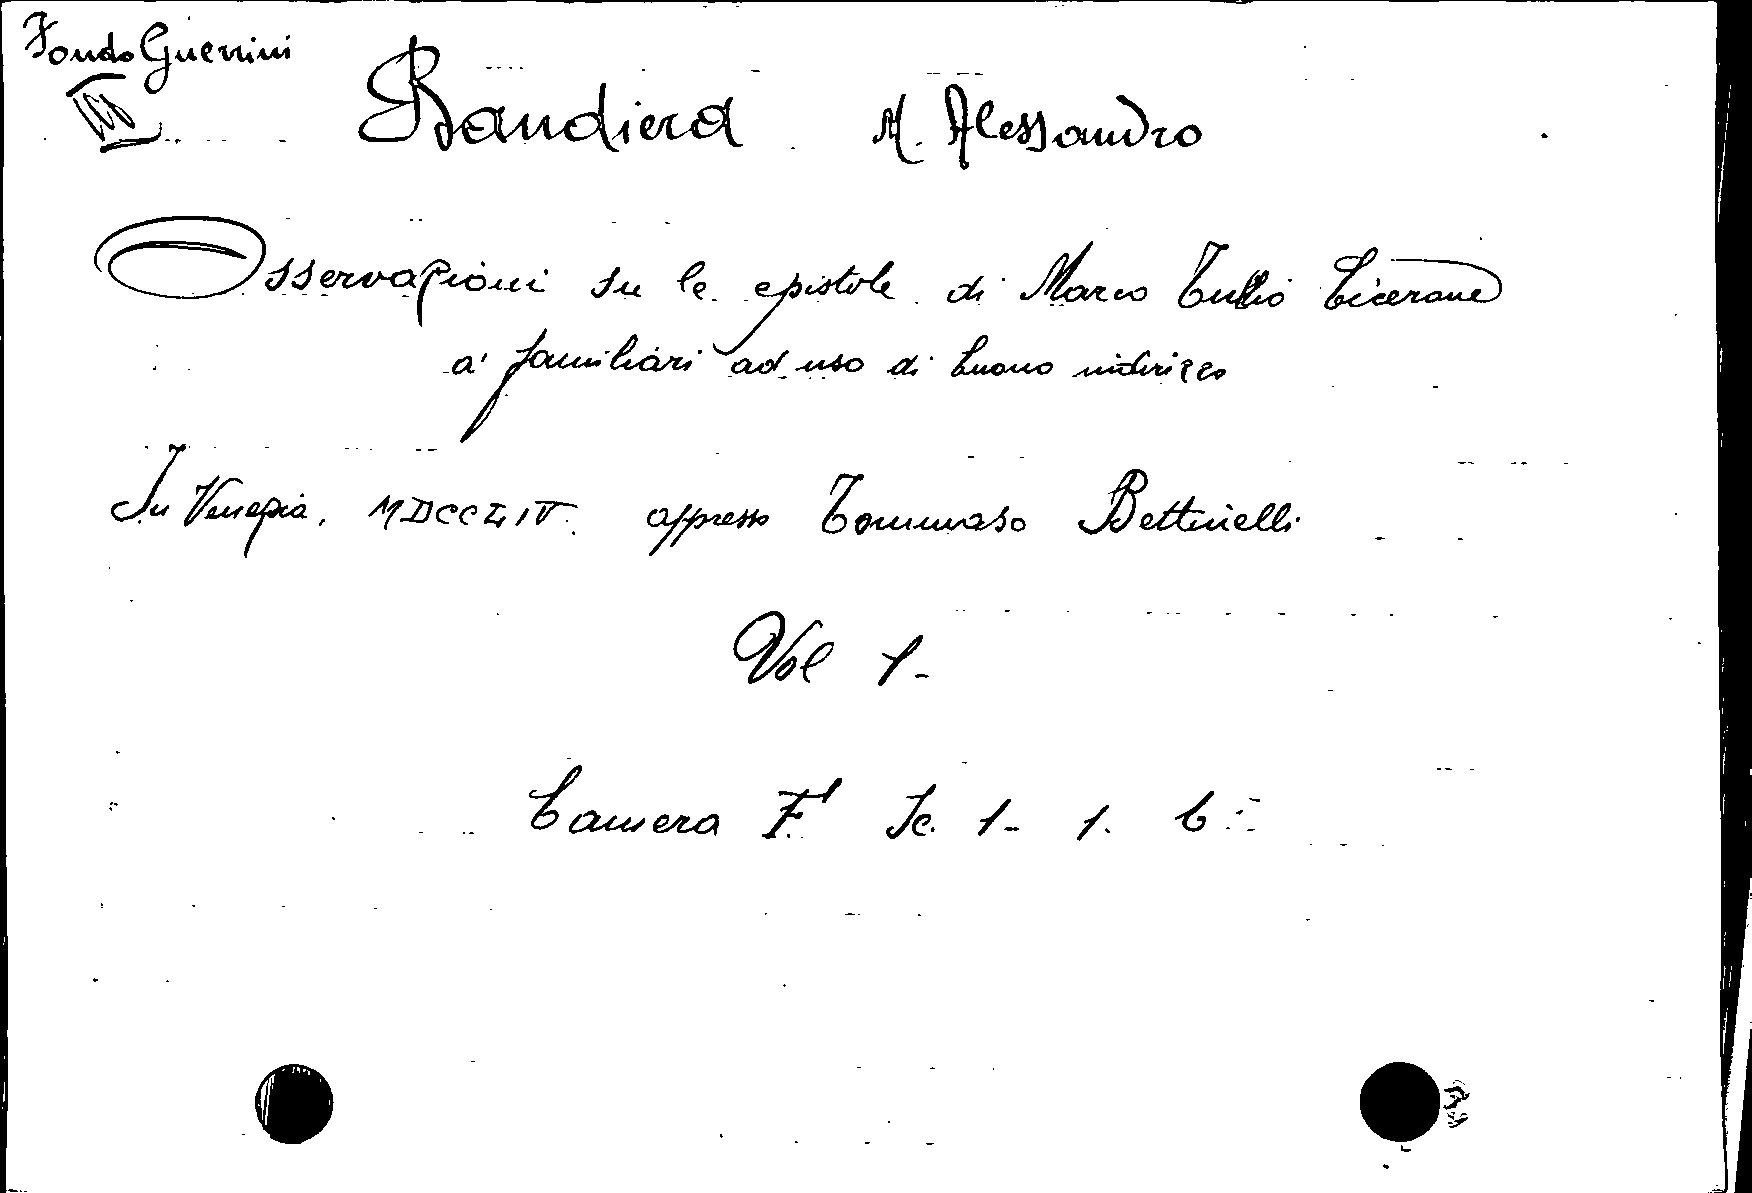 Fondo Guerrini
Bandiera M. Alessandro
Osservazioni su le epistole di Marco Tullio Cicerone
a' famigliari ad uso di buono indirizzo
In Venezia, MDCCLIV. appresso Tommaso Bettinelli
Vol 1-
Camera F' Sc. 1- 1. 6